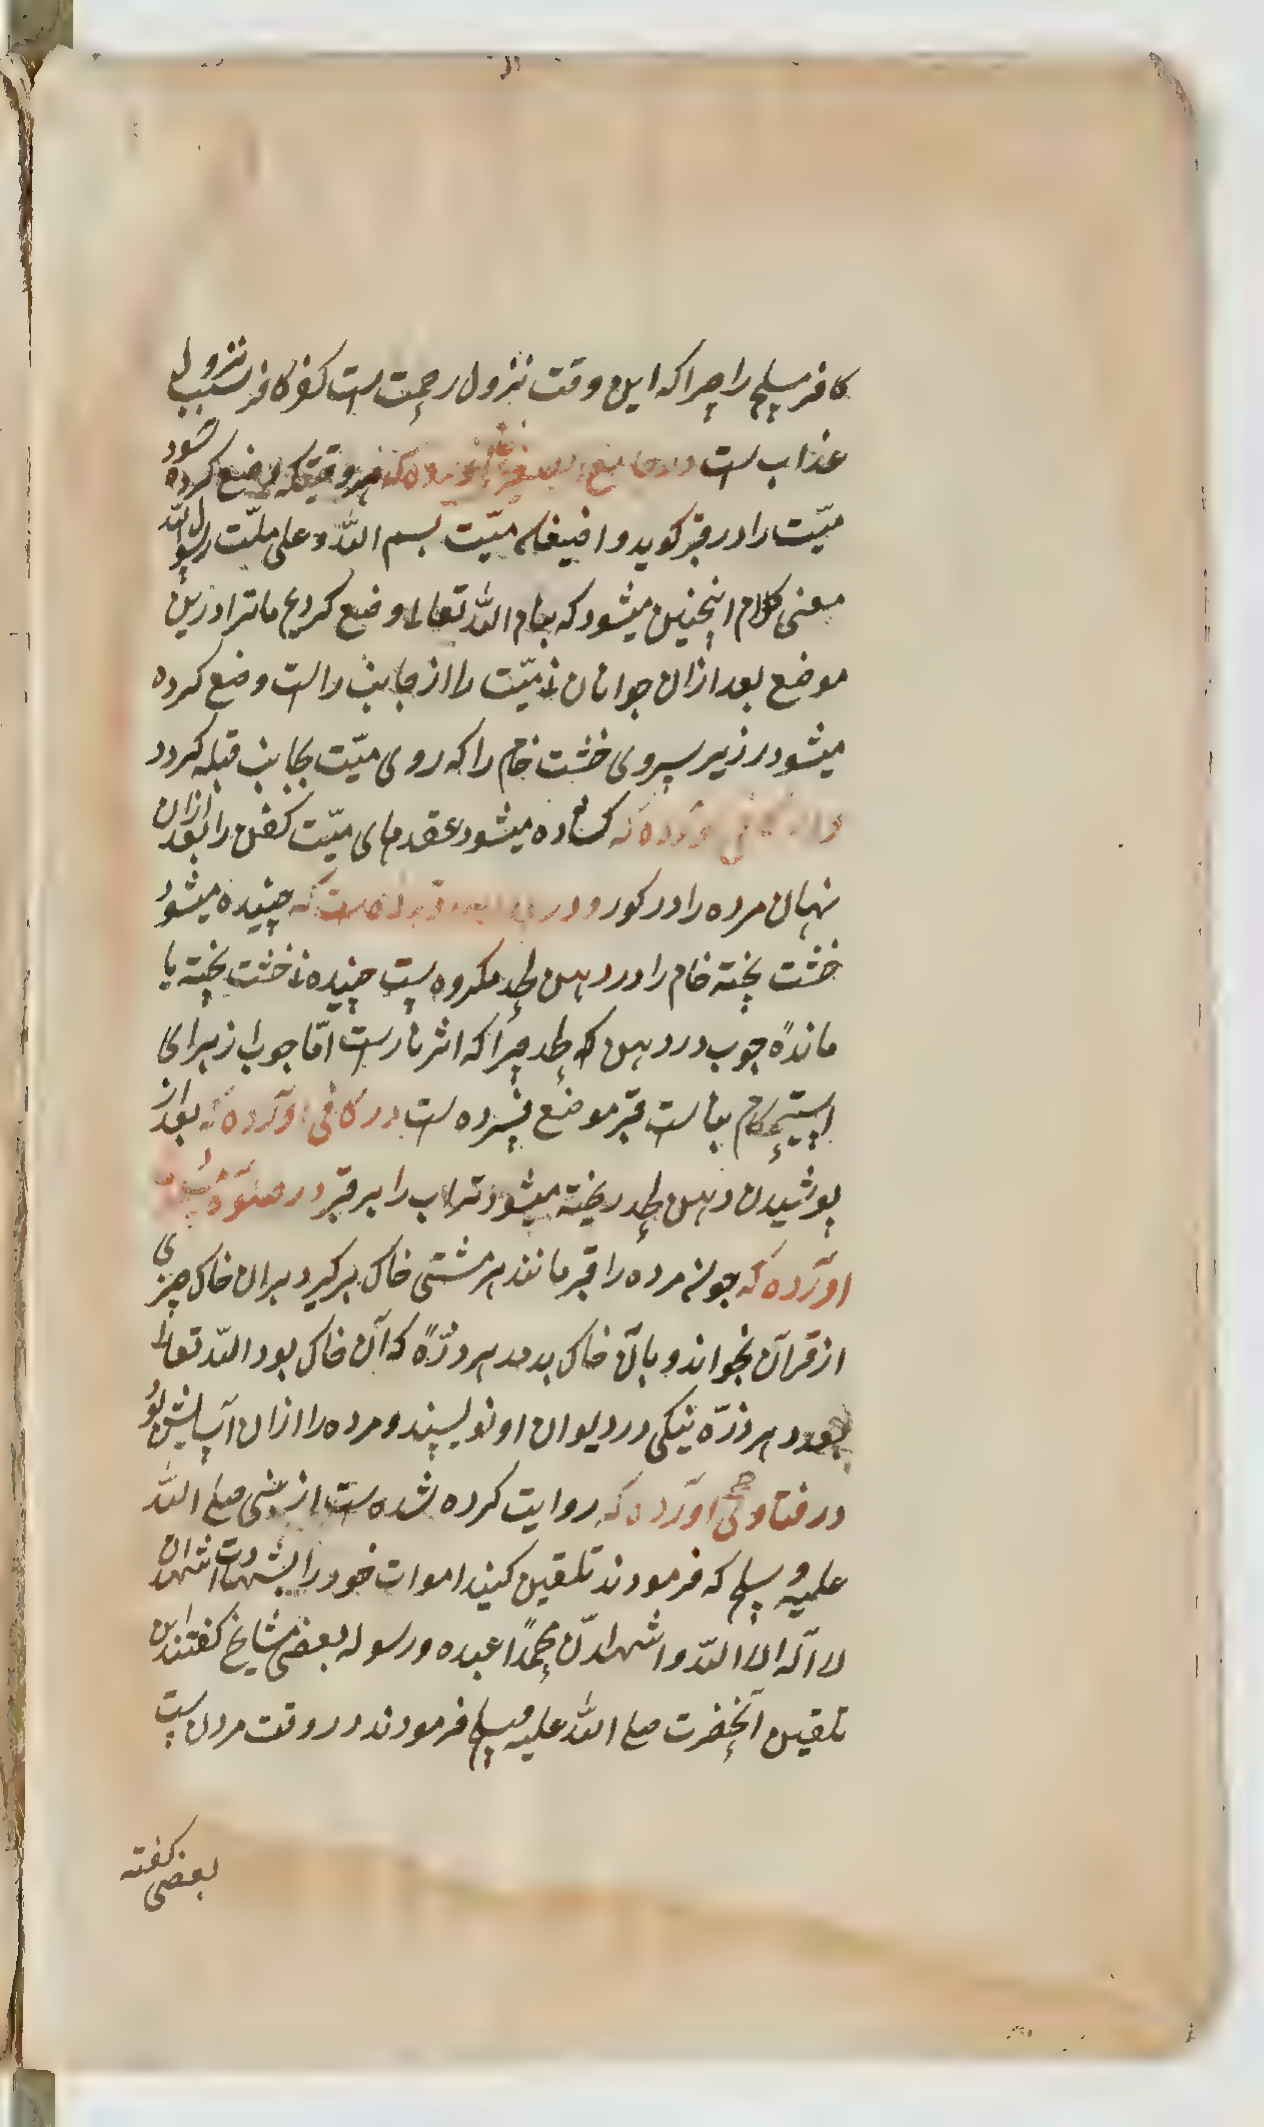 کافر مسلم را چرا که این وقت نزول رحمت است کفر کافر سبب نزول
عذاب است در جامع آورده که هر وقتیکه وضع کرده شود
میّت را در قبر کوید واضیغان میّت بسم الله وعلی ملّت رسول الله
معنی کلام اینچنین میشود که بنام الله تعالی وضع کردیم ما ترا درین
موضع بعد ازان جوانان میّت را از جانب راست وضع کرده
میشود در زیر سر وی خشت خام را که روی میّت بجانب قبله کردد
و در کافی آورده که کشاده میشود عقدهای میّت کفن را بعد ازان
نهان مرده را در کور و در که چنیده میشود
خشت پخته خام را در دهن لحد مکروه است چنیده خشت پخته یا
مانده چوب در دهن که لحد چرا که اثر نار است امّا چوب از برای
استحکام بنا است قبر موضع است در کافی آورده که بعد از
پوشیدن دهن لحد ریخته میشود تراب را بر قبر در صلوة
آورده که چون مرده را قبر مانند هر مشتی خاک برکیرد بران خاک چیزی
از قرآن بخواند و بآن خاک بدمد هر ذرّه که آن خاک بود الله تعالی
بعدد هر ذرّه نیکی در دیوان او نویسند و مرده را ازان آسایش بود
در فتاوی آورده که روایت کرده شده است از نبی صلی الله
علیه وسلم که فرمودند تلقین کنید اموات خود را بشهادت اشهد ان
لا اله الا الله واشهد انّ محمّدًا عبده ورسوله بعضی مشایخ کفتند این
تلقین آنحضرت صلی الله علیه وسلم فرمودند در وقت مردن است
بعضی کفته